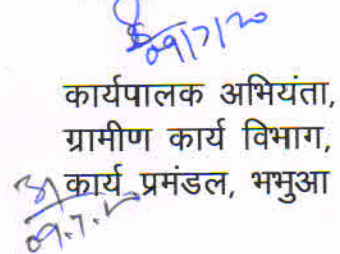 09/7/20
कार्यपालक अभियंता,
ग्रामीण कार्य विभाग,
कार्य प्रमंडल, भभुआ
09.7.20